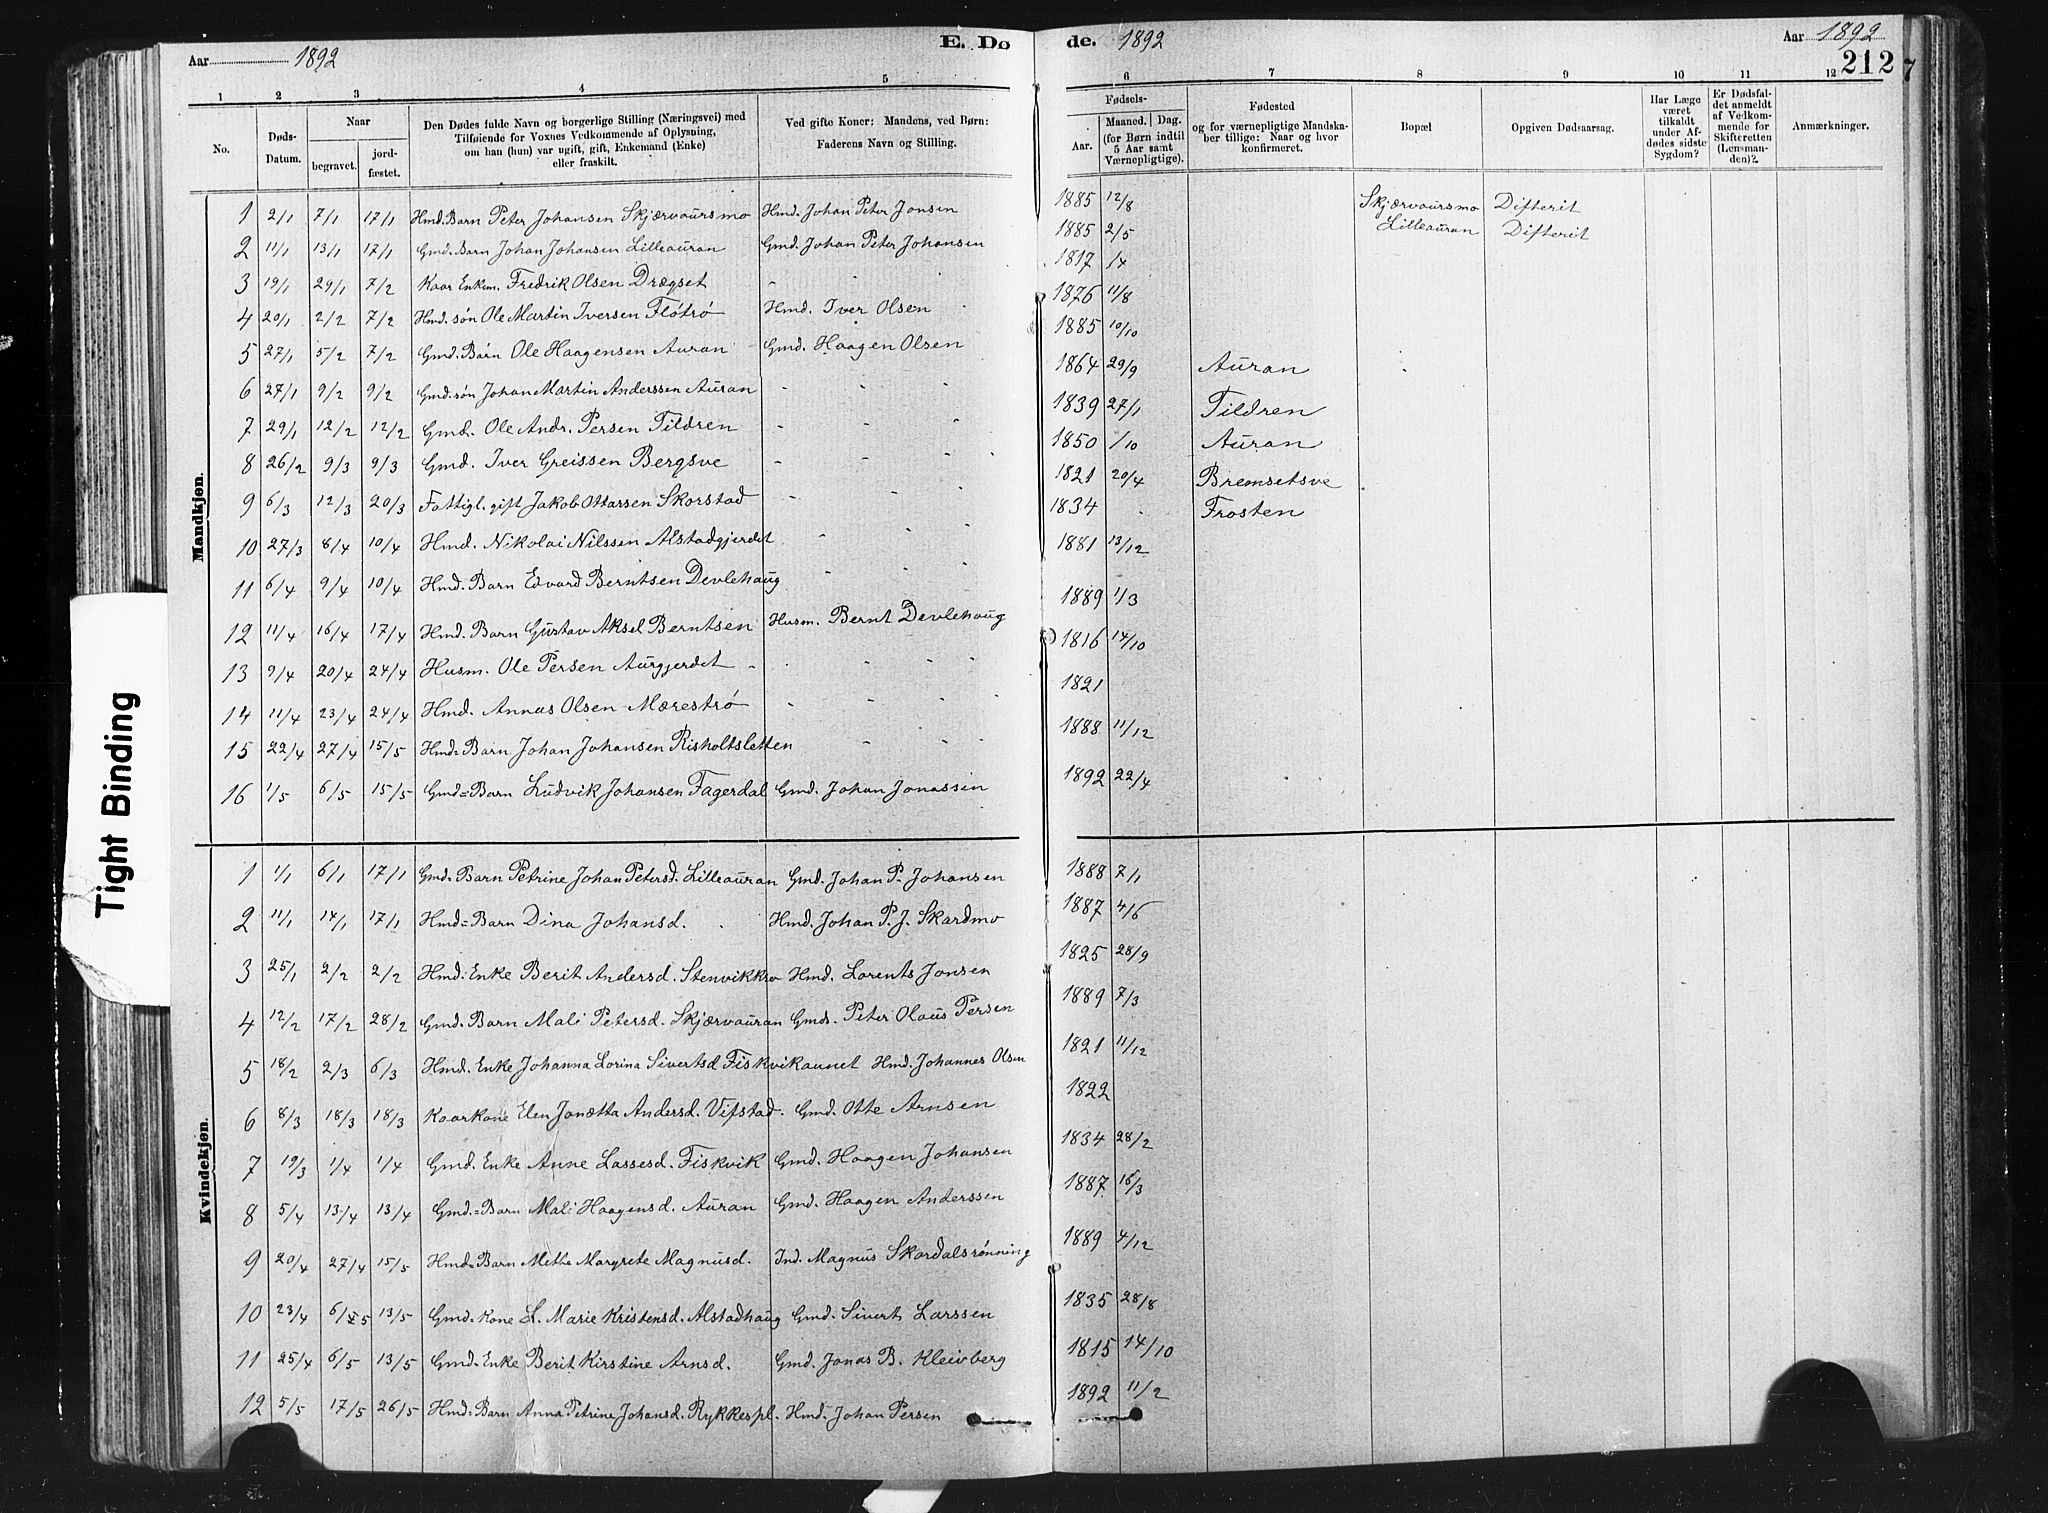 Aar 1892 E. Dø de. 1892 Aar 1892
212 7
1 2 3 4 5 6 7 8 9 10 11 12
No. Døds-Datum. Naar begravet. jord-fæstet. Den Dødes fulde Navn og borgerlige Stilling (Næringsvei) med Tilføiende for Voxnes Vedkommende af Oplysning, om han (hun) var ugift, gift, Enkemand (Enke) eller fraskilt. Ved gifte Koner: Mandens, ved Børn: Faderens Navn og Stilling. Fødsels- Aar. Maaned. Dag. (for Børn indtil 5 Aar samt Værnepligtige). Fødested og for værnepligtige Mandska-ber tillige: Naar og hvor konfirmeret. Bopæl Opgiven Dødsaarsag. Har Læge været tilkaldt under Af-dødes sidste Sygdom? Er Dødsfal-det anmeldt af Vedkom-mende for Skifteretten (Lensman-den)? Anmærkninger.
Mandkjøn.
1 2/1 7/1 17/1 Hmd. Barn Peter Johansen Skjærvaursmo Hmd. Johan Peter Jonsen 1885 12/8 Skjærvaursmo Difterit
2 11/1 13/1 17/1 Gmd. Barn Johan Johansen Lilleauran Gmd. Johan Peter Johansen 1885 2/5 Lilleauran Difterit
3 19/1 29/1 7/2 Kaar Enkem. Fredrik Olsen Drægset - 1817 /4
4 20/1 2/2 7/2 Hmd. søn Ole Martin Iversen Fløtrø Hmd. Iver Olsen 1876 11/8
5 27/1 5/2 7/2 Gmd. Barn Ole Haagensen Auran Gmd. Haagen Olsen 1885 10/10
6 27/1 9/2 9/2 Gmd. søn Johan Martin Anderssen Auran - - - 1864 29/9 Auran
7 29/1 12/2 12/2 Gmd. Ole Andr. Persen Tildren - - - 1839 27/1 Tildren
8 26/2 9/3 9/3 Gmd. Iver Greissen Bergsve - - - 1850 /10 Auran
9 6/3 12/3 20/3 Fattigl. gift Jakob Ottarsen Skorstad - - - 1821 20/4 Bremsetsve
10 27/3 8/4 10/4 Hmd. Nikolai Nilssen Alstadgjerdet - - - 1834 - Frosten
11 6/4 9/4 10/4 Hmd. Barn Edvard Berntsen Devlehaug - - - 1881 13/12
12 11/4 16/4 17/4 Hmd. Barn Gustav Aksel Berntsen Husm. Bernt Devlehaug 1889 1/3
13 9/4 20/4 24/4 Husm. Ole Persen Aurgjerdet - - - 1816 14/10
14 11/4 23/4 24/4 Hmd. Annas Olsen Mærestrø - - - 1821
15 22/4 27/4 15/5 Hmd. Barn Johan Johansen Risholtsletten - - 1888 11/12
16 1/5 6/5 15/5 Gmd. Barn Ludvik Johansen Fagerdal Gmd. Johan Jonassen 1892 22/4
Kvindekjøn.
1 1/1 6/1 17/1 Gmd. Barn Petrine Johan Petersd. Lilleauran Gmd. Johan P. Johansen 1888 7/1
2 11/1 14/1 17/1 Hmd. Barn Dina Johansd. Hmd. Johan P. J. Skardmo 1887 4/6
3 25/1 2/2 2/2 Hmd. Enke Berit Andersd. Stenvikkro Hmd. Lorents Jonsen 1825 28/9
4 12/2 17/2 28/2 Gmd. Barn Mali Petersd. Skjærvauran Gmd. Peter Olaus Persen 1889 7/3
5 18/2 2/3 6/3 Hmd. Enke Johanna Lorina Sivertsd Fiskvikaunet Hmd. Johannes Olsen 1821 11/12
6 8/3 18/3 18/3 Kaarkone Elen Jonetta Andersd. Vifstad. Gmd. Otte Arnsen 1822
7 19/3 1/4 1/4 Gmd. Enke Anne Lassesd. Fiskvik Gmd. Haagen Johansen 1834 28/2
8 5/4 13/4 13/4 Gmd. Barn Mali Haagensd. Auran Gmd. Haagen Anderssen 1887 16/3
9 20/4 27/4 15/5 Hmd. Barn Methe Margrete Magnusd. Ind. Magnus Skordalsrønning 1889 4/12
10 23/4 6/5 13/5 Gmd. Kone L. Marie Kristensd. Alstadhaug Gmd. Sivert Larssen 1835 28/8
11 25/4 6/5 13/5 Gmd. Enke Berit Kirstine Arnsd. Gmd. Jonas B. Kleivberg 1815 14/10
12 5/5 17/5 26/5 Hmd. Barn Anna Petrine Johansd. Rykkespl. Hmd. Johan Persen 1892 11/2
Tight Binding